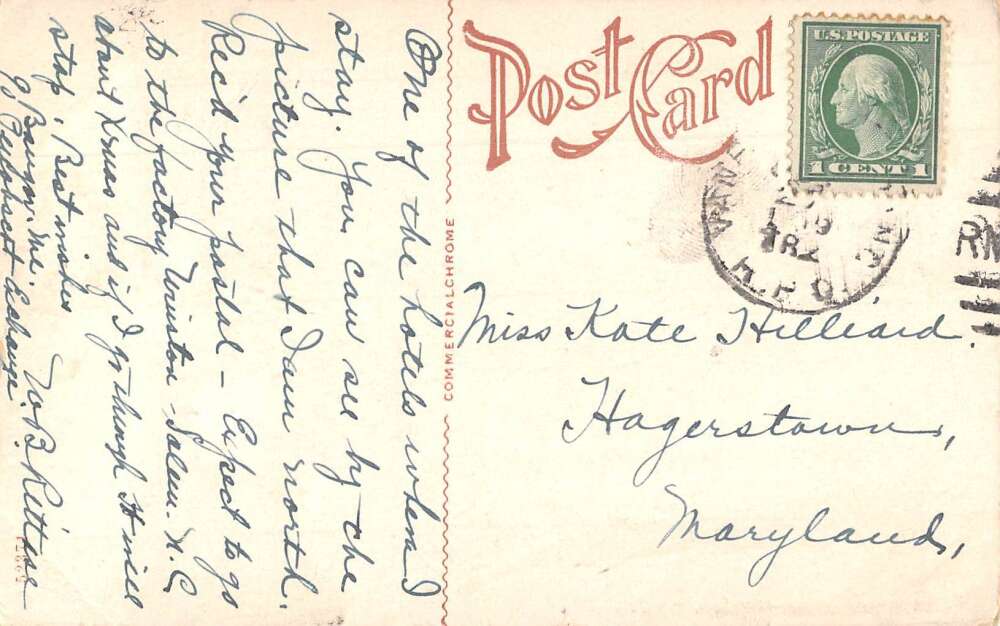 Post Card
U.S. POSTAGE
1 CENT 1
R.P.O.
Miss Kate Hilliard.
Hagerstown,
Maryland,
COMMERCIALCHROME
One of the hotels where I
stay. You can see by the
picture that I am north.
Rec'd your postal - Expect to go
to the factory, Winston-Salem. N.C.
about Xmas and if I go through H will
stop. Best wishes
W.B.
Bangor, Me.